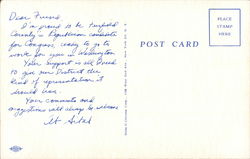 Dear Friend
I'm proud to be Fairfield
County's Republican candidate
for Congress, ready to go to
work for you in Washington.
Your support is all I need
to give our District the
kind of representation it
should have.
Your comments and
suggestions will always be welcome
POST CARD
PLACE
STAMP
HERE